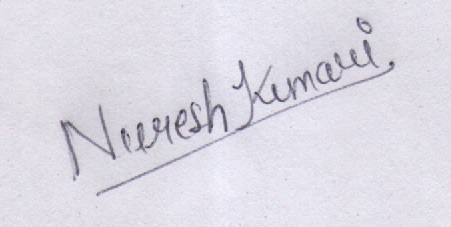 Nuresh Kumari